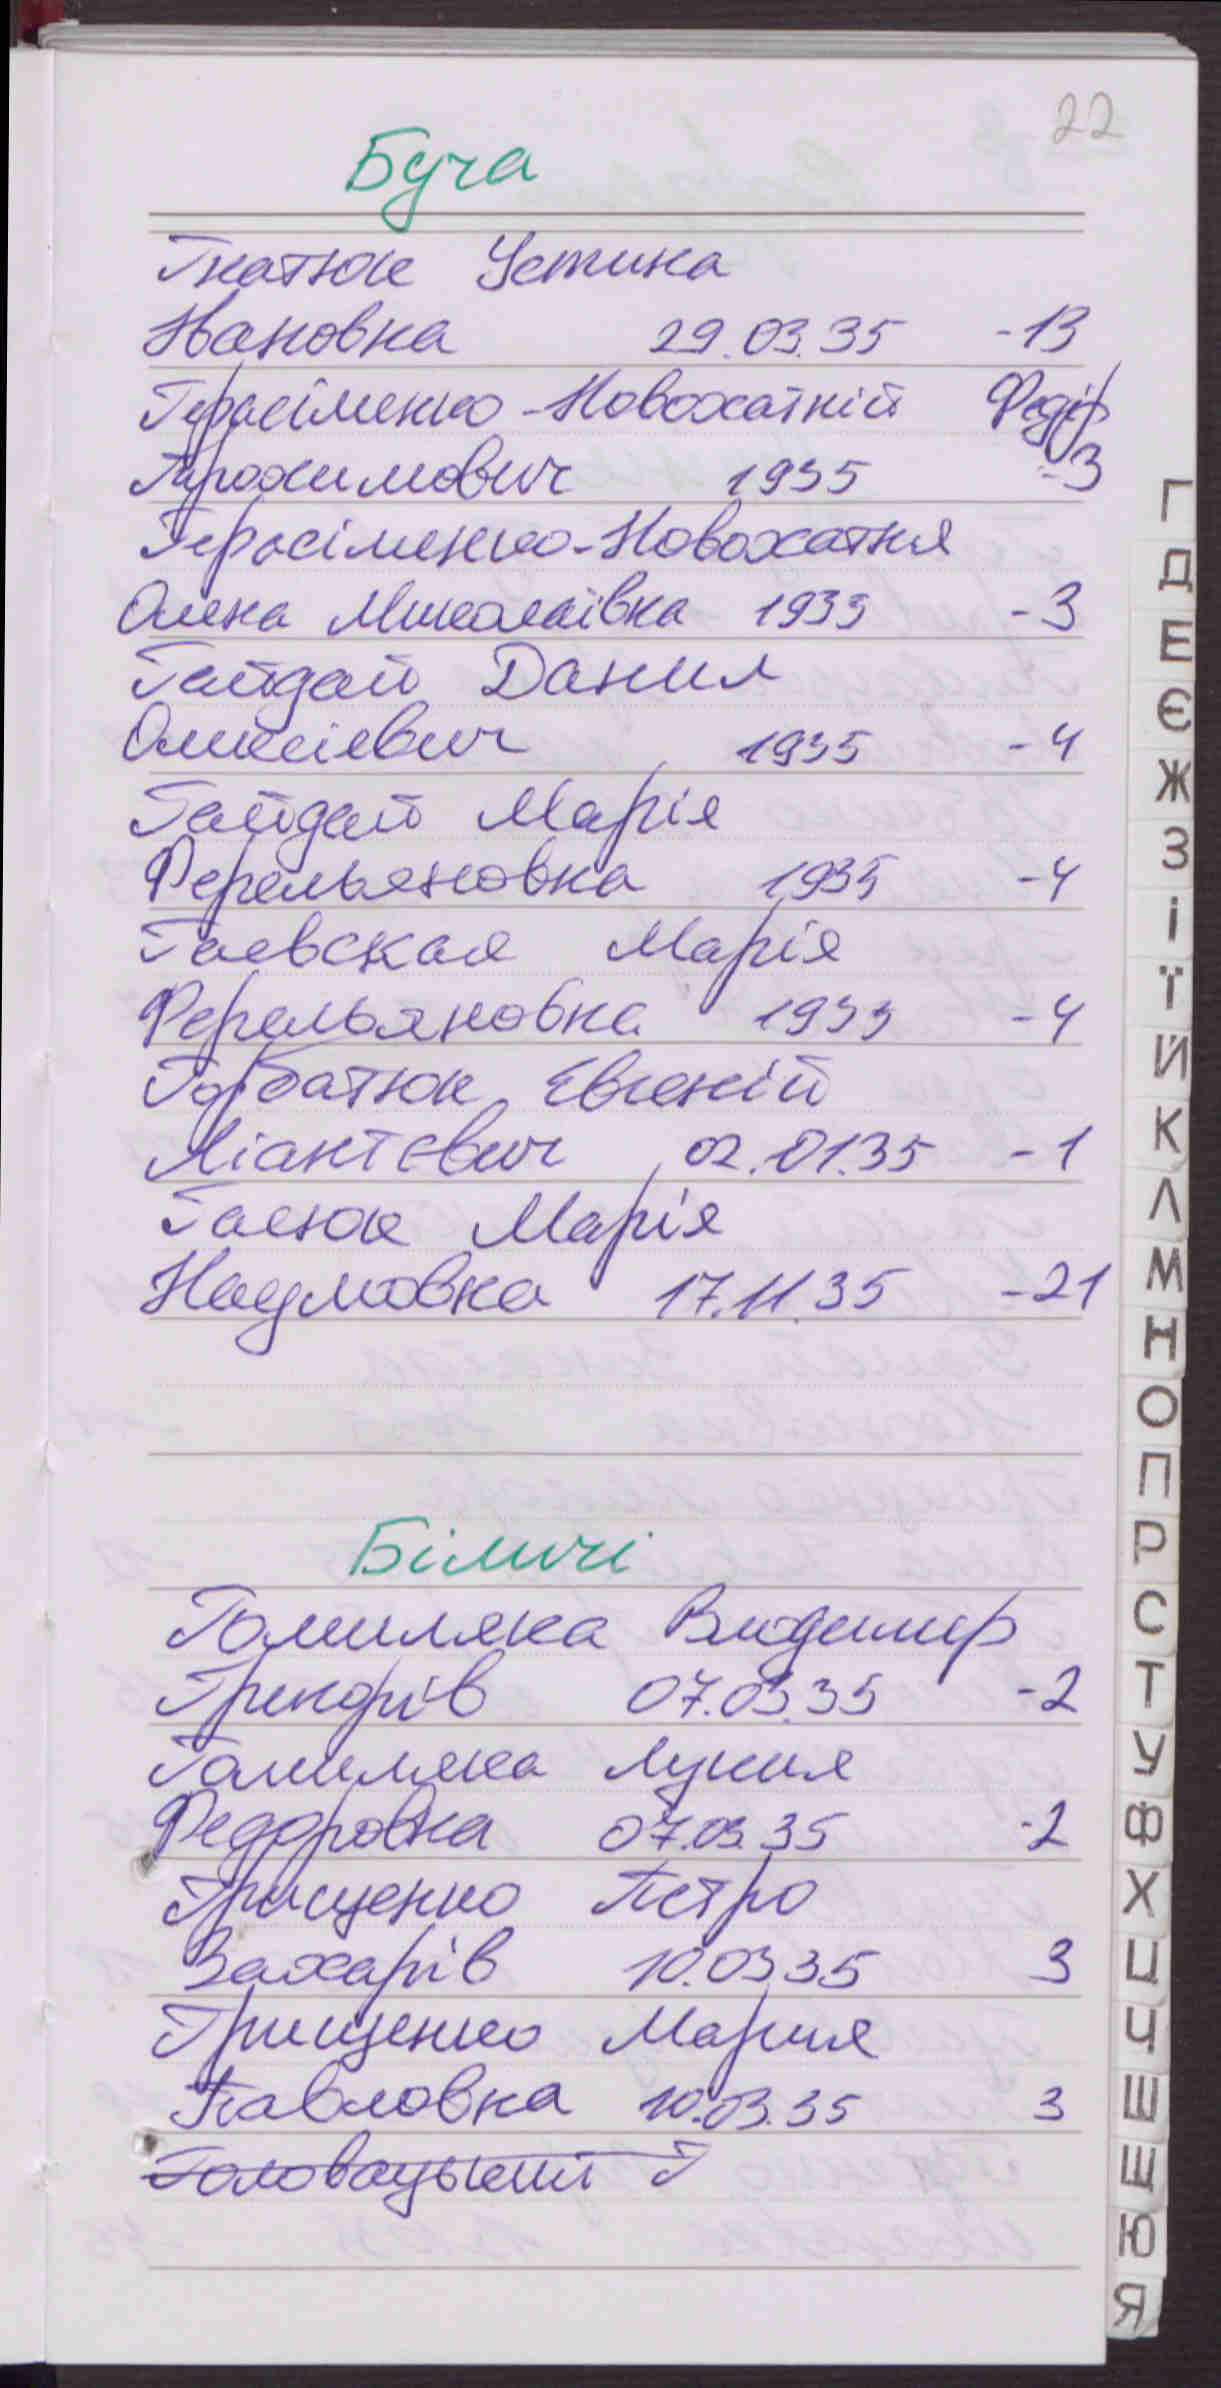 22
Буча
Гнатюк Устина
Івановна 29.03.35 -13
Герасіменко-Новохатній Федір
Трохимович 1935 -3
Герасіменко-Новохатня
Олена Миколаївна 1935 -3
Гайдай Данил
Олексієвич 1935 -4
Гайдай Марія
Ферельяновна 1935 -4
Гаевская Марія
Ферельяновна 1935 -4
Горбатюк Євгеній
02.01.35 -1
Марія
Наумовна 17.11.35 -21
Біличі
Гомиляка Владимир
Григорів 07.03.35 -2
Гомиляка Лукия
Федоровна 07.03.35 -2
Грищенко Петро
Захарів 10.03.35 3
Грищенко Мария
Павловна 10.03.35 3
Головацький Г
Г
Д
Е
Є
Ж
З
І
Ї
Й
К
Л
М
Н
О
П
Р
С
Т
У
Ф
Х
Ц
Ч
Ш
Щ
Ю
Я